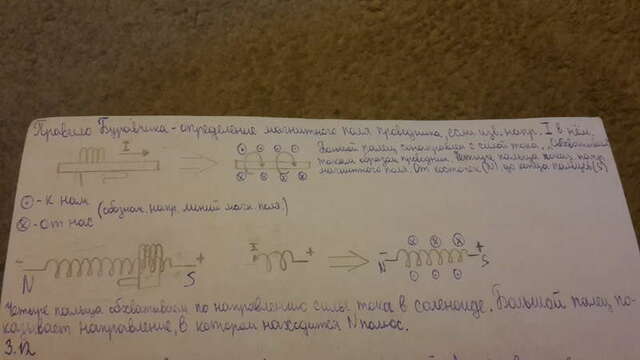 Правило Буравчика - определение магнитного поля проводника, если изв. напр. I в нём.
I
Большой палец сонаправлен с силой тока,
током образом проводник. Четыре пальца
магнитного поля. От (N) до конца пальцев (S)
⊙ - к нам (обознач. напр. линий магн. поля.)
⊗ - от нас
- + I + - +
N S N S
Четыре пальца обхватываем по направлению силы тока в соленоиде. Большой палец по-
казывает направление, в котором находится N полюс.
3.12